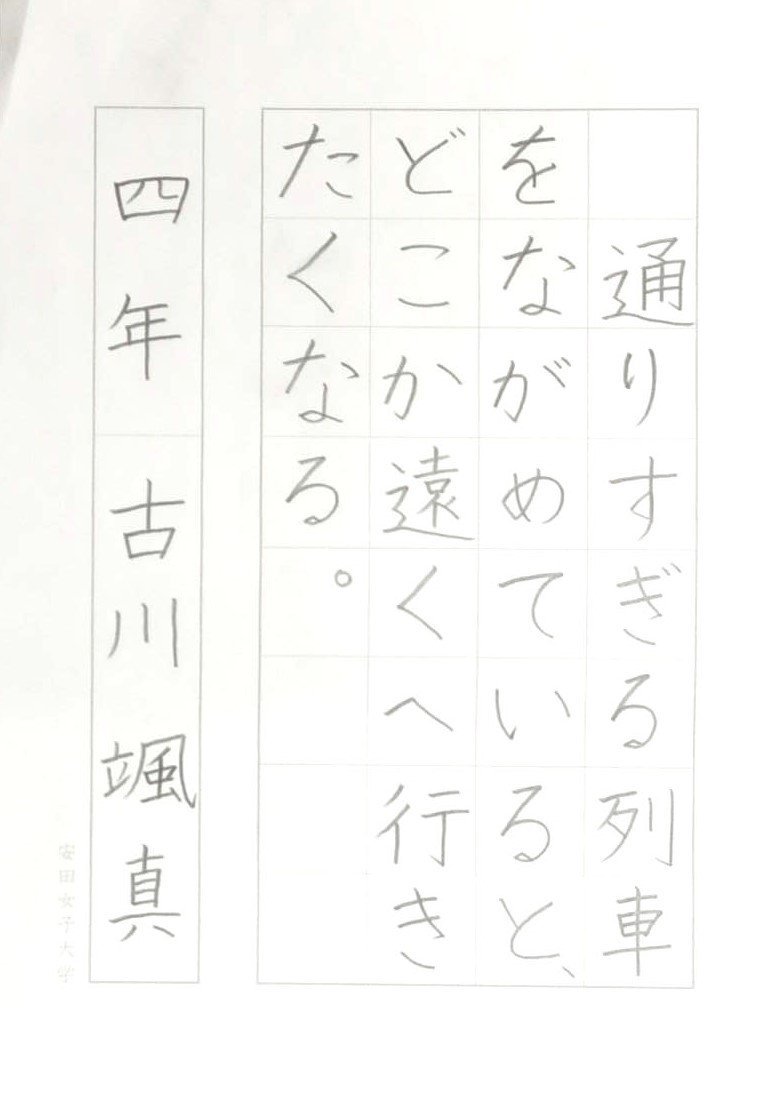 通りすぎる列車
をながめていると、
どこか遠くへ行き
たくなる。
四年　古川颯真
安田女子大学